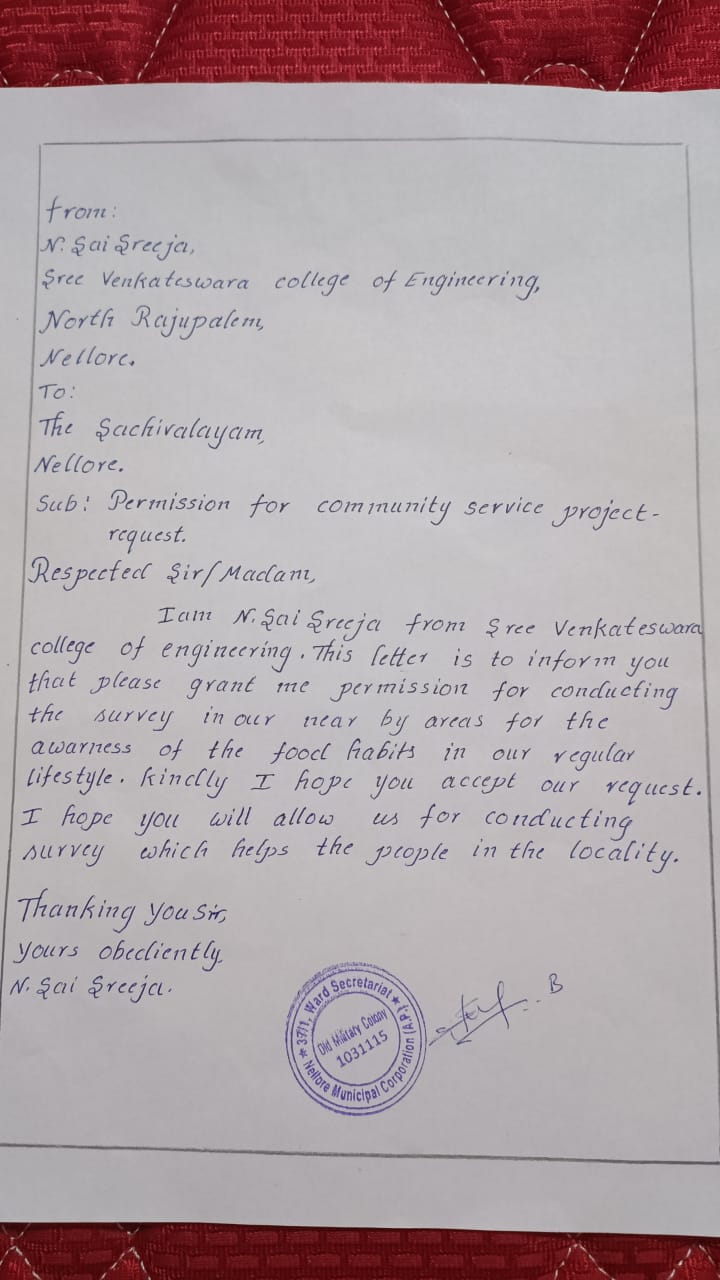 from:
N. Sai Sreeja,
Sree Venkateswara college of Engineering,
North Rajupalem,
Nellore.
To:
The Sachivalayam,
Nellore.
Sub: Permission for community service project-
request.
Respected Sir/Madam,
I am N. Sai Sreeja from Sree Venkateswara
college of engineering. This letter is to inform you
that please grant me permission for conducting
the survey in our near by areas for the
awarness of the food habits in our regular
lifestyle. kindly I hope you accept our request.
I hope you will allow us for conducting
survey which helps the people in the locality.
Thanking You Sir,
yours obediently
N. Sai Sreeja.
★ 37/1, Ward Secretariat ★
Old Military Colony
1031115
Nellore Municipal Corporation (A.P.)
B